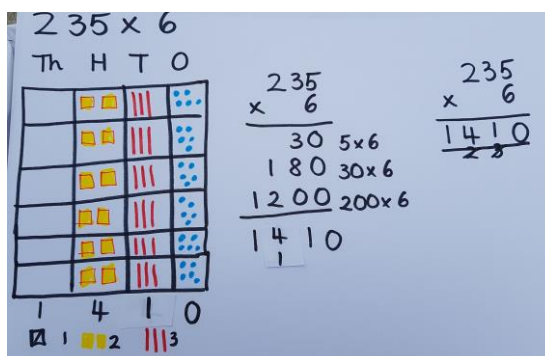 235 x 6
Th H T O
1 4 1 0
1 2 3
235
x 6
30 5x6
180 30x6
1200 200x6
1410
1
235
x 6
1410
2 3